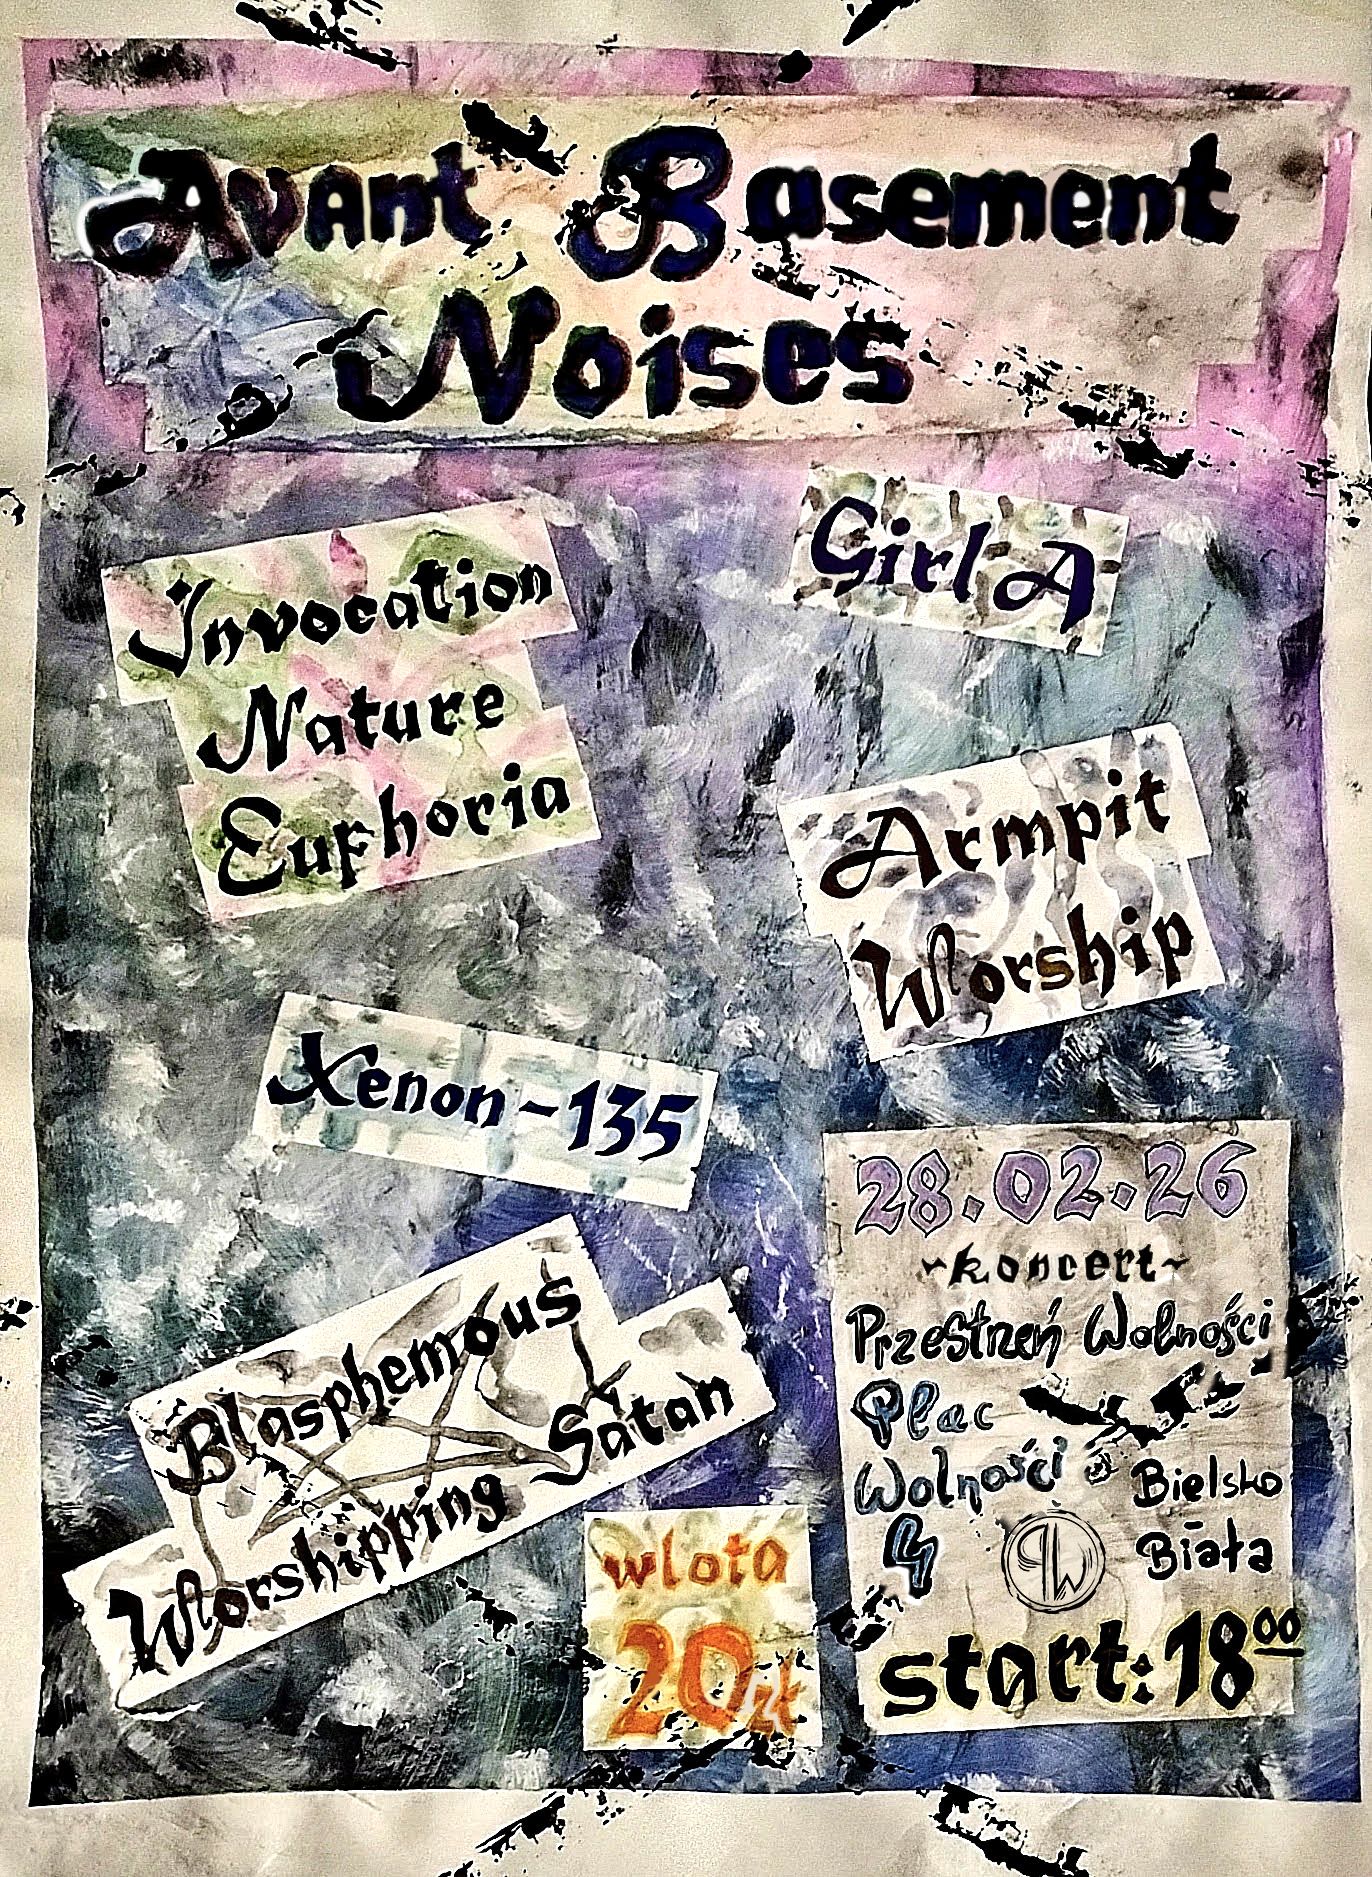 Avant Basement
Noises
Invocation
Nature
Euphoria
Girl A
Armpit
Worship
Xenon-135
Blasphemous
Worshipping Satan
28.02.26
~koncert~
Przestrzeń Wolności
Plac
Wolności
Bielsko
Biała
PW
start: 18⁰⁰
wlota
20 zł